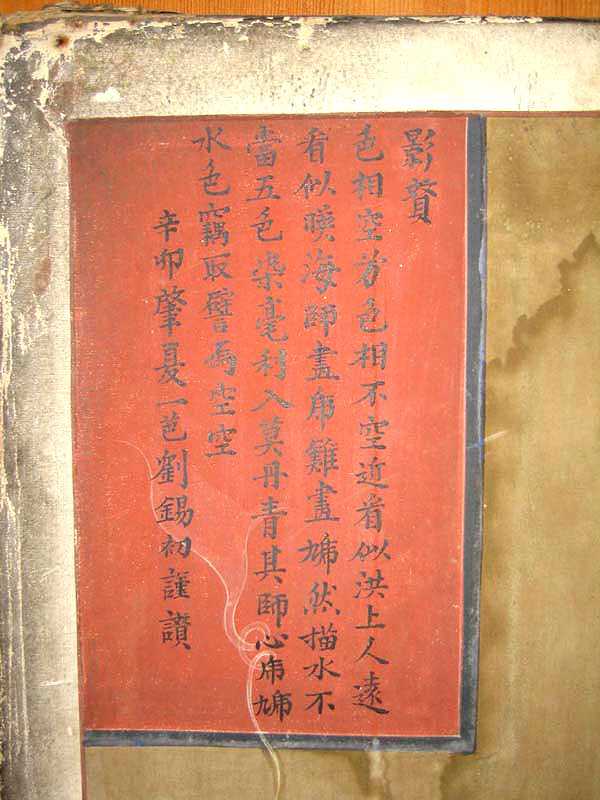 影賛
色相空芳色相不空近看似洪上人遠
看似暎海師畫難畫然描水不
當五色染毫利入莫丹青其師心
水色竊取譬爲空空
辛卯肇夏一芭劉錫初謹讚